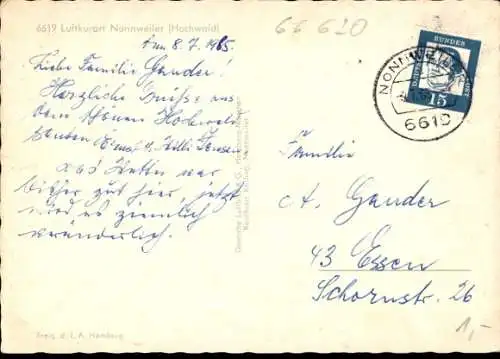 6619 Luftkurort Nonnweiler (Hochwald)
66 620
den 8. 7. 1965.
Liebe Familie Gander!
Herzliche Grüße aus
dem schönen Hochwald
senden Erna u. Willi
Das Wetter war
bisher gut hier, jetzt
wird es ziemlich
veränderlich.
Familie
A. Gander
43 Essen
Schornstr. 26
1,-
DEUTSCHE BUNDESPOST
15
NONNWEILER
6619
Freig. d. L. A. Hamburg